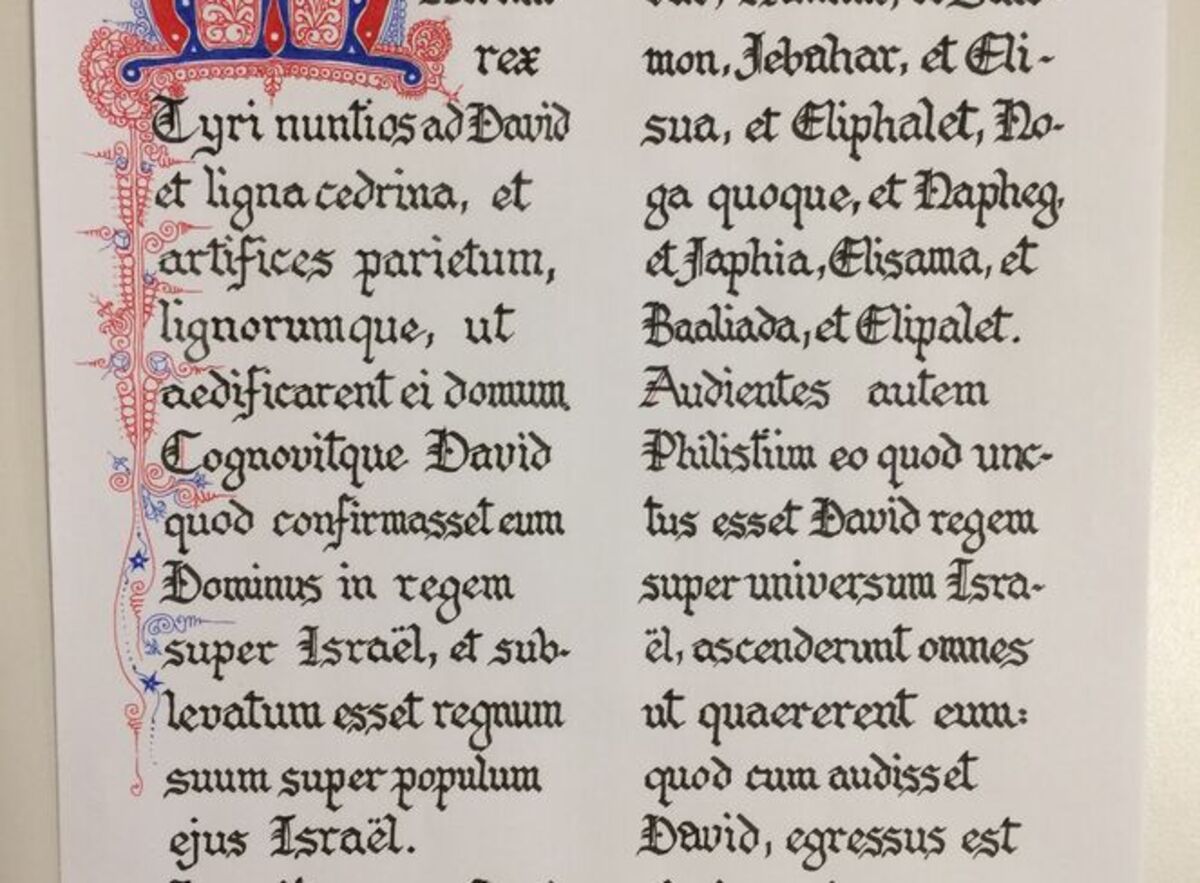 rex
Tyri nuntios ad David
et ligna cedrina, et
artifices parietum,
lignorumque, ut
aedificarent ei domum.
Cognovitque David
quod confirmasset eum
Dominus in regem
super Israël, et sub-
levatum esset regnum
suum super populum
ejus Israël.
mon, Jebahar, et Eli-
sua, et Eliphalet, No-
ga quoque, et Napheg,
et Japhia, Elisama, et
Baaliada, et Elipalet.
Audientes autem
Philistiim eo quod unc-
tus esset David regem
super universum Isra-
ël, ascenderunt omnes
ut quaererent eum:
quod cum audisset
David, egressus est